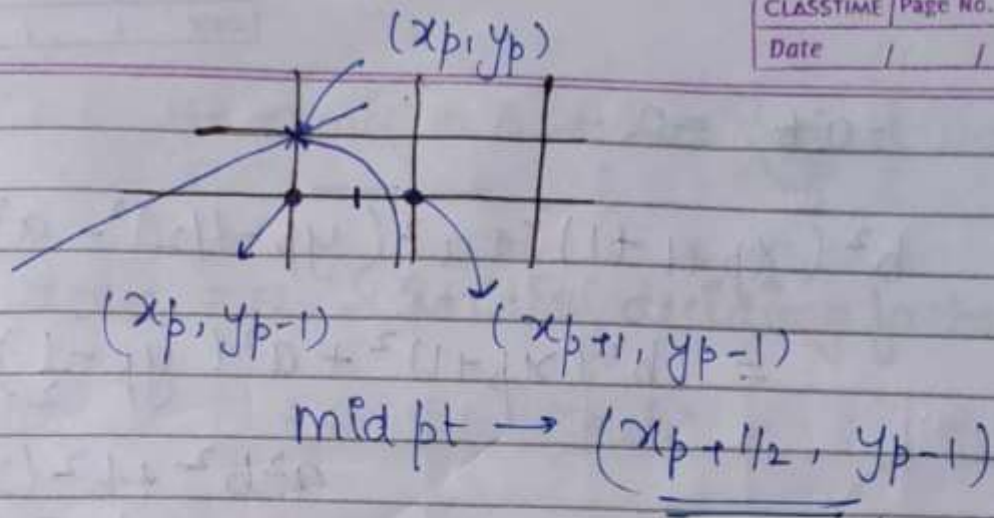 CLASSTIME Page No.
Date / /
(xp, yp)
(xp, yp-1)
(xp+1, yp-1)
mid pt → (xp+1/2, yp-1)